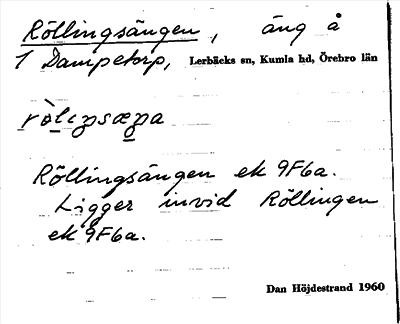 Röllingsängen, äng å
1 Dampetorp, Lerbäcks sn, Kumla hd, Örebro län
Röllingsängen ek 9F6a.
Ligger invid Röllingen
ek 9F6a.
Dan Höjdestrand 1960